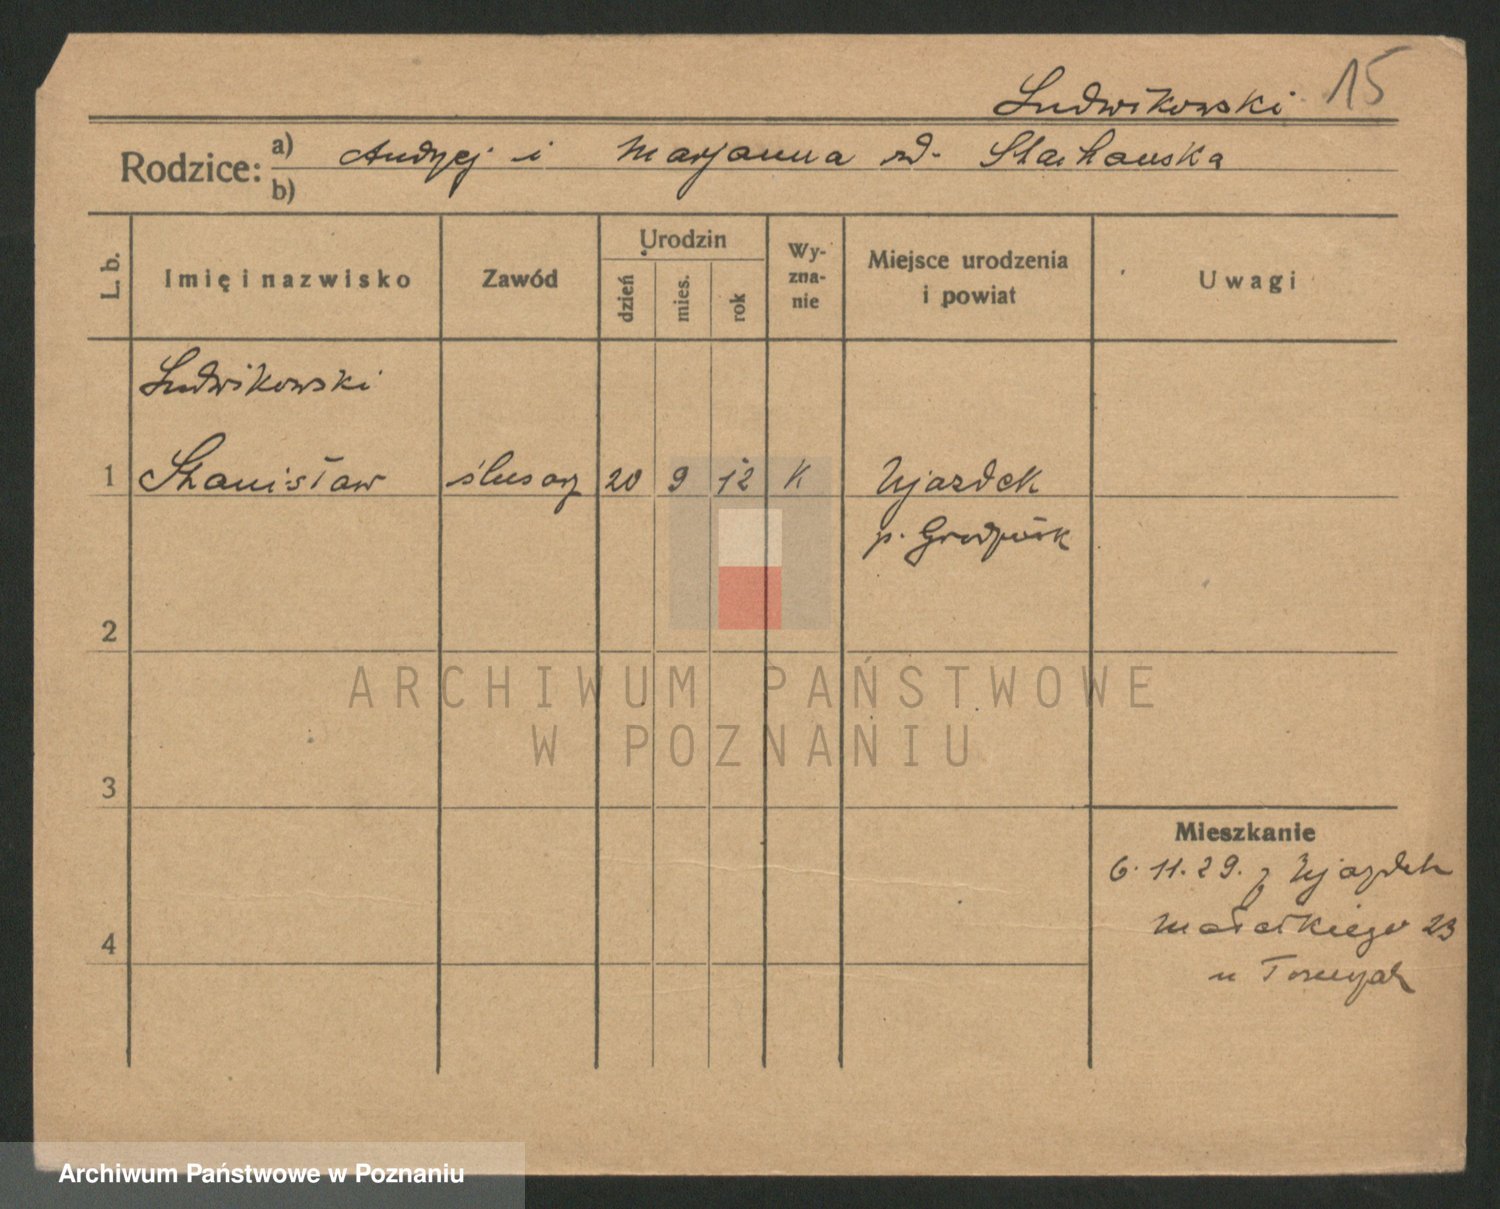 Ludwikowski 15
Rodzice: a) Andrzej i Marjanna zd. Stachowska
b)
L. b.
Imię i nazwisko
Zawód
Urodzin
dzień
mies.
rok
Wy-
zna-
nie
Miejsce urodzenia
i powiat
Uwagi
Ludwikowski
1 Stanisław ślusarz 20 9 12 K Ujazdek
p. Grodzisk
2
3
4
Mieszkanie
6.11.29. z Ujazdek
Małeckiego 23
u
ARCHIWUM PAŃSTWOWE
W POZNANIU
Archiwum Państwowe w Poznaniu